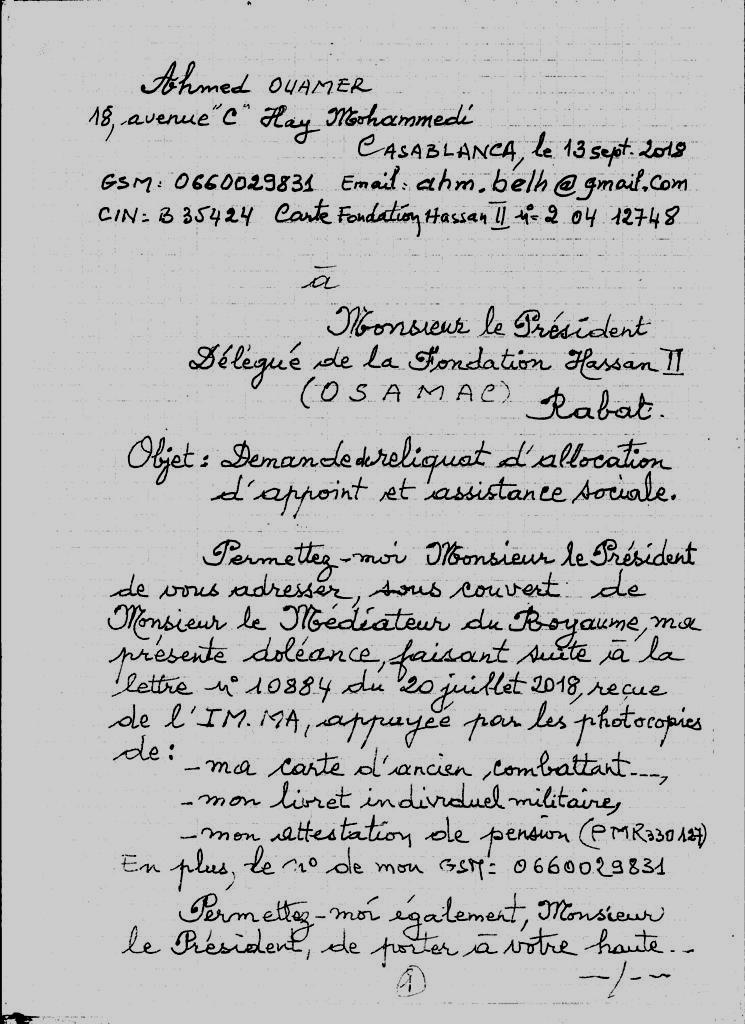 Ahmed OUAMER
18, avenue "C" Hay Mohammedi
CASABLANCA, le 13 sept. 2018
GSM: 0660029831 Email: ahm.belh@gmail.com
CIN: B 35424 Carte Fondation Hassan II n° 2 04 12748
à
Monsieur le Président
Délégué de la Fondation Hassan II
(OSAMAC) Rabat.
Objet: Demande de reliquat d'allocation
d'appoint et assistance sociale.
Permettez-moi Monsieur le Président
de vous adresser, sous couvert de
Monsieur le Médiateur du Royaume, ma
présente doléance, faisant suite à la
lettre n° 10884 du 20 juillet 2018, reçue
de l'IM.MA, appuyée par les photocopies
de:
- ma carte d'ancien combattant---,
- mon livret individuel militaire,
- mon attestation de pension (PMR330127)
En plus, le n° de mon GSM: 0660029831
Permettez-moi également, Monsieur
le Président, de porter à votre haute--
--/--
1